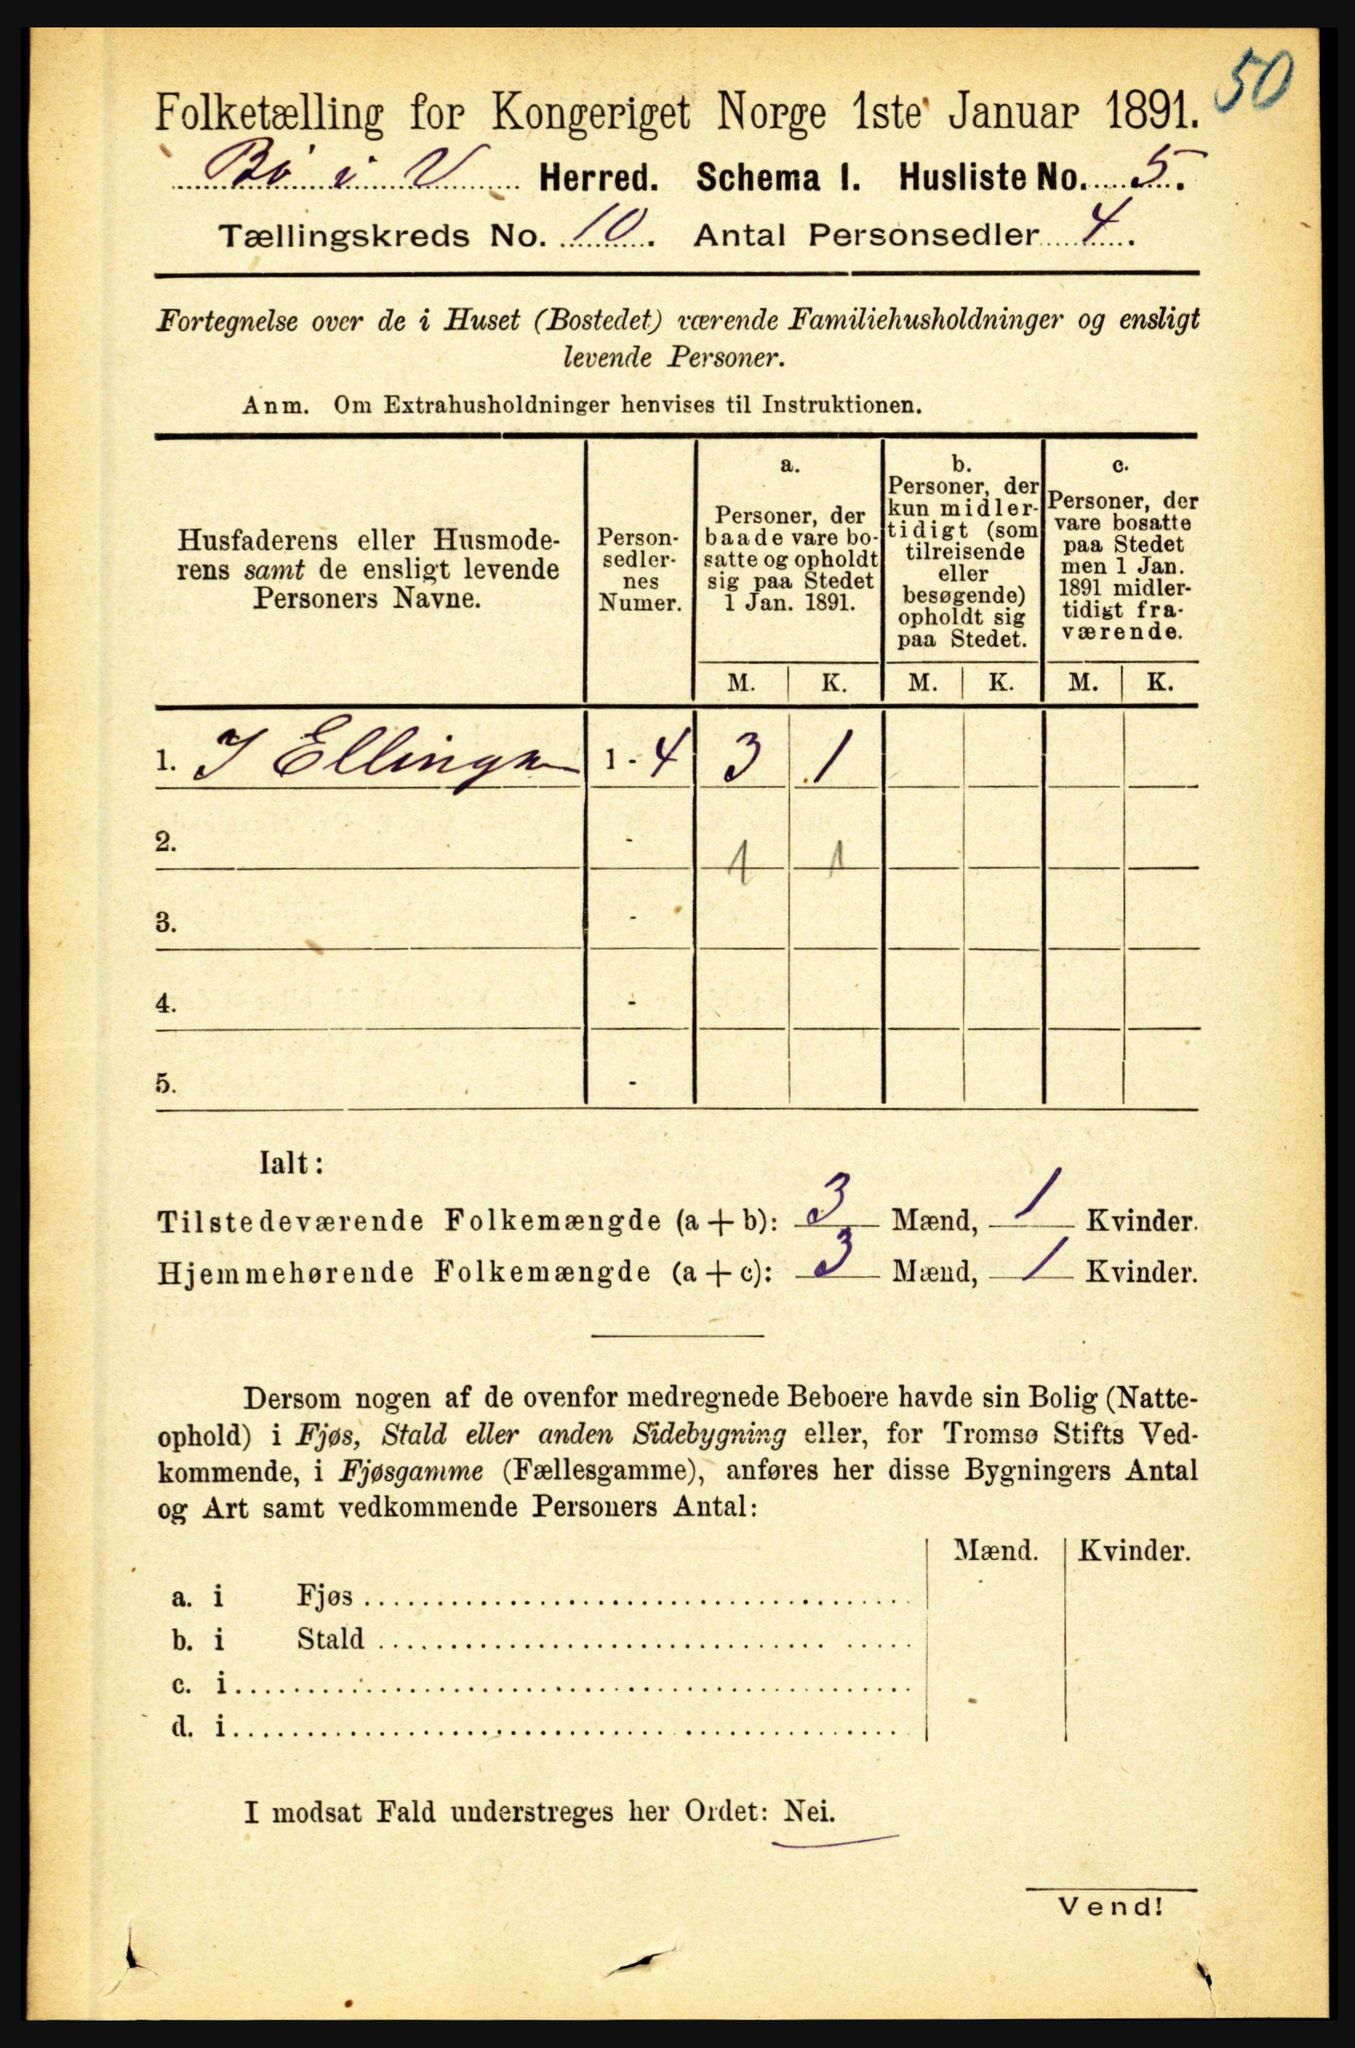 50
Folketælling for Kongeriget Norge 1ste Januar 1891.
Bø i V Herred. Schema I. Husliste No. 5.
Tællingskreds No. 10. Antal Personsedler 4.
Fortegnelse over de i Huset (Bostedet) værende Familiehusholdninger og ensligt
levende Personer.
Anm. Om Extrahusholdninger henvises til Instruktionen.
Husfaderens eller Husmode-
rens samt de ensligt levende
Personers Navne.
Person-
sedler-
nes
Numer.
a.
Personer, der
baade vare bo-
satte og opholdt
sig paa Stedet
1 Jan. 1891.
b.
Personer, der
kun midler-
tidigt (som
tilreisende
eller
besøgende)
opholdt sig
paa Stedet.
c.
Personer, der
vare bosatte
paa Stedet
men 1 Jan.
1891 midler-
tidigt fra-
værende.
M. K. M. K. M. K.
1. I Ellingsen 1 - 4 3 1
2. - 1 1
3. -
4. -
5. -
Ialt:
Tilstedeværende Folkemængde (a + b): 3 Mænd, 1 Kvinder.
Hjemmehørende Folkemængde (a + c): 3 Mænd, 1 Kvinder.
Dersom nogen af de ovenfor medregnede Beboere havde sin Bolig (Natte-
ophold) i Fjøs, Stald eller anden Sidebygning eller, for Tromsø Stifts Ved-
kommende, i Fjøsgamme (Fællesgamme), anføres her disse Bygningers Antal
og Art samt vedkommende Personers Antal:
Mænd. Kvinder.
a. i Fjøs
b. i Stald
c. i
d. i
I modsat Fald understreges her Ordet: Nei.
Vend!